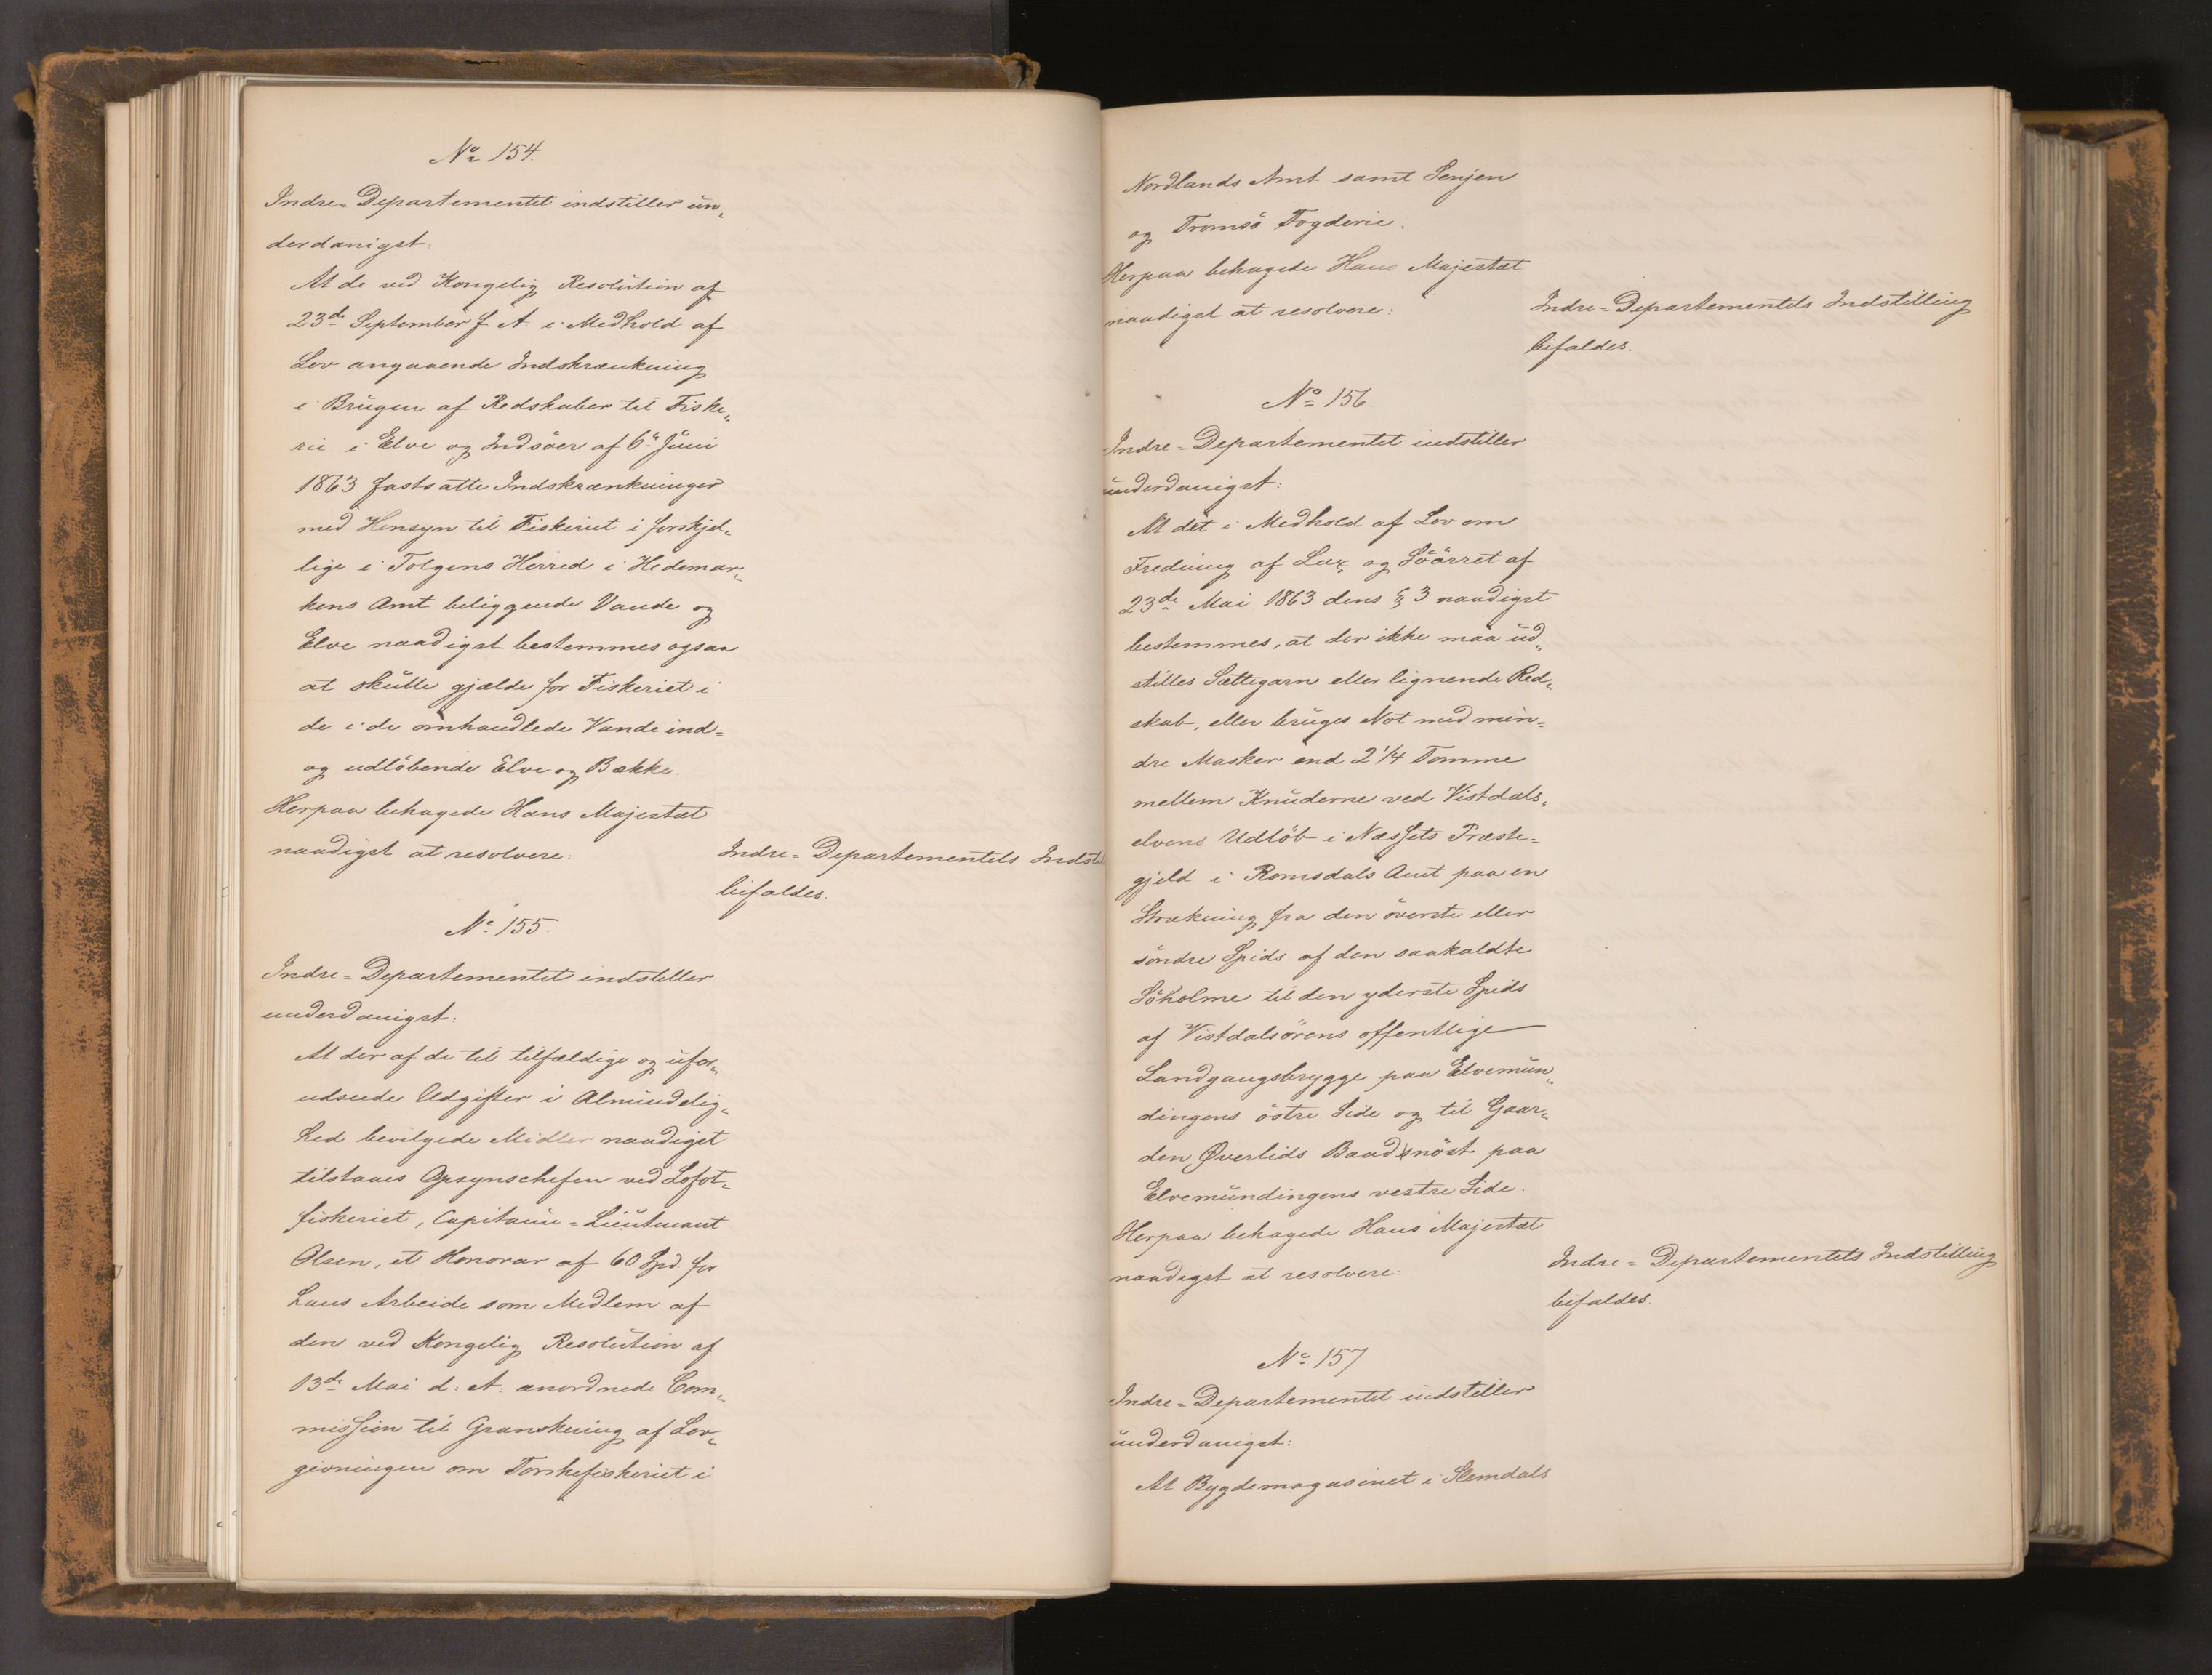 No 154.
Indre-Departementet indstiller un-
derdanigst:
At de ved Kongelig Resolution af
23de September f. A. i Medhold af
Lov angaaende Indskrænkning
i Brugen af Redskaber til Fiske-
rie i Elve og Indsöer af 6te Juni
1863 fastsatte Indskrænkninger
med Hensyn til Fiskeriet i forskjel-
lige i Tolgens Herred i Hedemar-
kens Amt beliggende Vande og
Elve naadigst bestemmes ogsaa
at skulle gjælde for Fiskeriet i
de i de omhandlede Vande ind-
og udlöbende Elve og Bække.
Herpaa behagede Hans Majestæt
naadigst at resolvere:
Indre-Departementets Indsti
bifaldes.
No 155.
Indre-Departementet indstiller
underdanigst:
At der af de til tilfældige og ufor-
udseede Udgifter i Almindelig-
hed bevilgede Midler naadigst
tilstaaes Opsynschefen ved Lofot-
fiskeriet, Capitain-Lieutenant
Olsen, et Honorar af 60 Spd. for
hans Arbeide som Medlem af
den ved Kongelig Resolution af
13de Mai d. A. anordnede Com-
mission til Granskning af Lov-
givningen om Torskefiskeriet i
Nordlands Amt samt Senjen
og Tromsö Fogderie.
Herpaa behagede Hans Majestæt
naadigst at resolvere:
Indre-Departementets Indstilling
bifaldes.
No 156
Indre-Departementet indstiller
underdanigst:
At det i Medhold af Lov om
Fredning af Lax og Söörret af
23de Mai 1863 dens § 3 naadigst
bestemmes, at der ikke maa ud-
stilles Sættegarn eller lignende Red-
skab, eller bruges Not med min-
dre Masker end 2 1/4 Tomme
mellem Knuderne ved Vistdals-
elvens Udlöb i Næssets Præste-
gjeld i Romsdals Amt paa en
Strækning fra den överste eller
söndre Spids af den saakaldte
Söholme til den yderste Spids
af Vistdalsörens offentlige
Landgangsbrygge paa Elvemun-
dingens östre Side og til Gaar-
den Øverlids Baadnöst paa
Elvemundingens vestre Side.
Herpaa behagede Hans Majestæt
naadigst at resolvere:
Indre-Departementets Indstilling
bifaldes.
No 157
Indre-Departementet indstiller
underdanigst:
At Bygdemagasinet i Slemdals